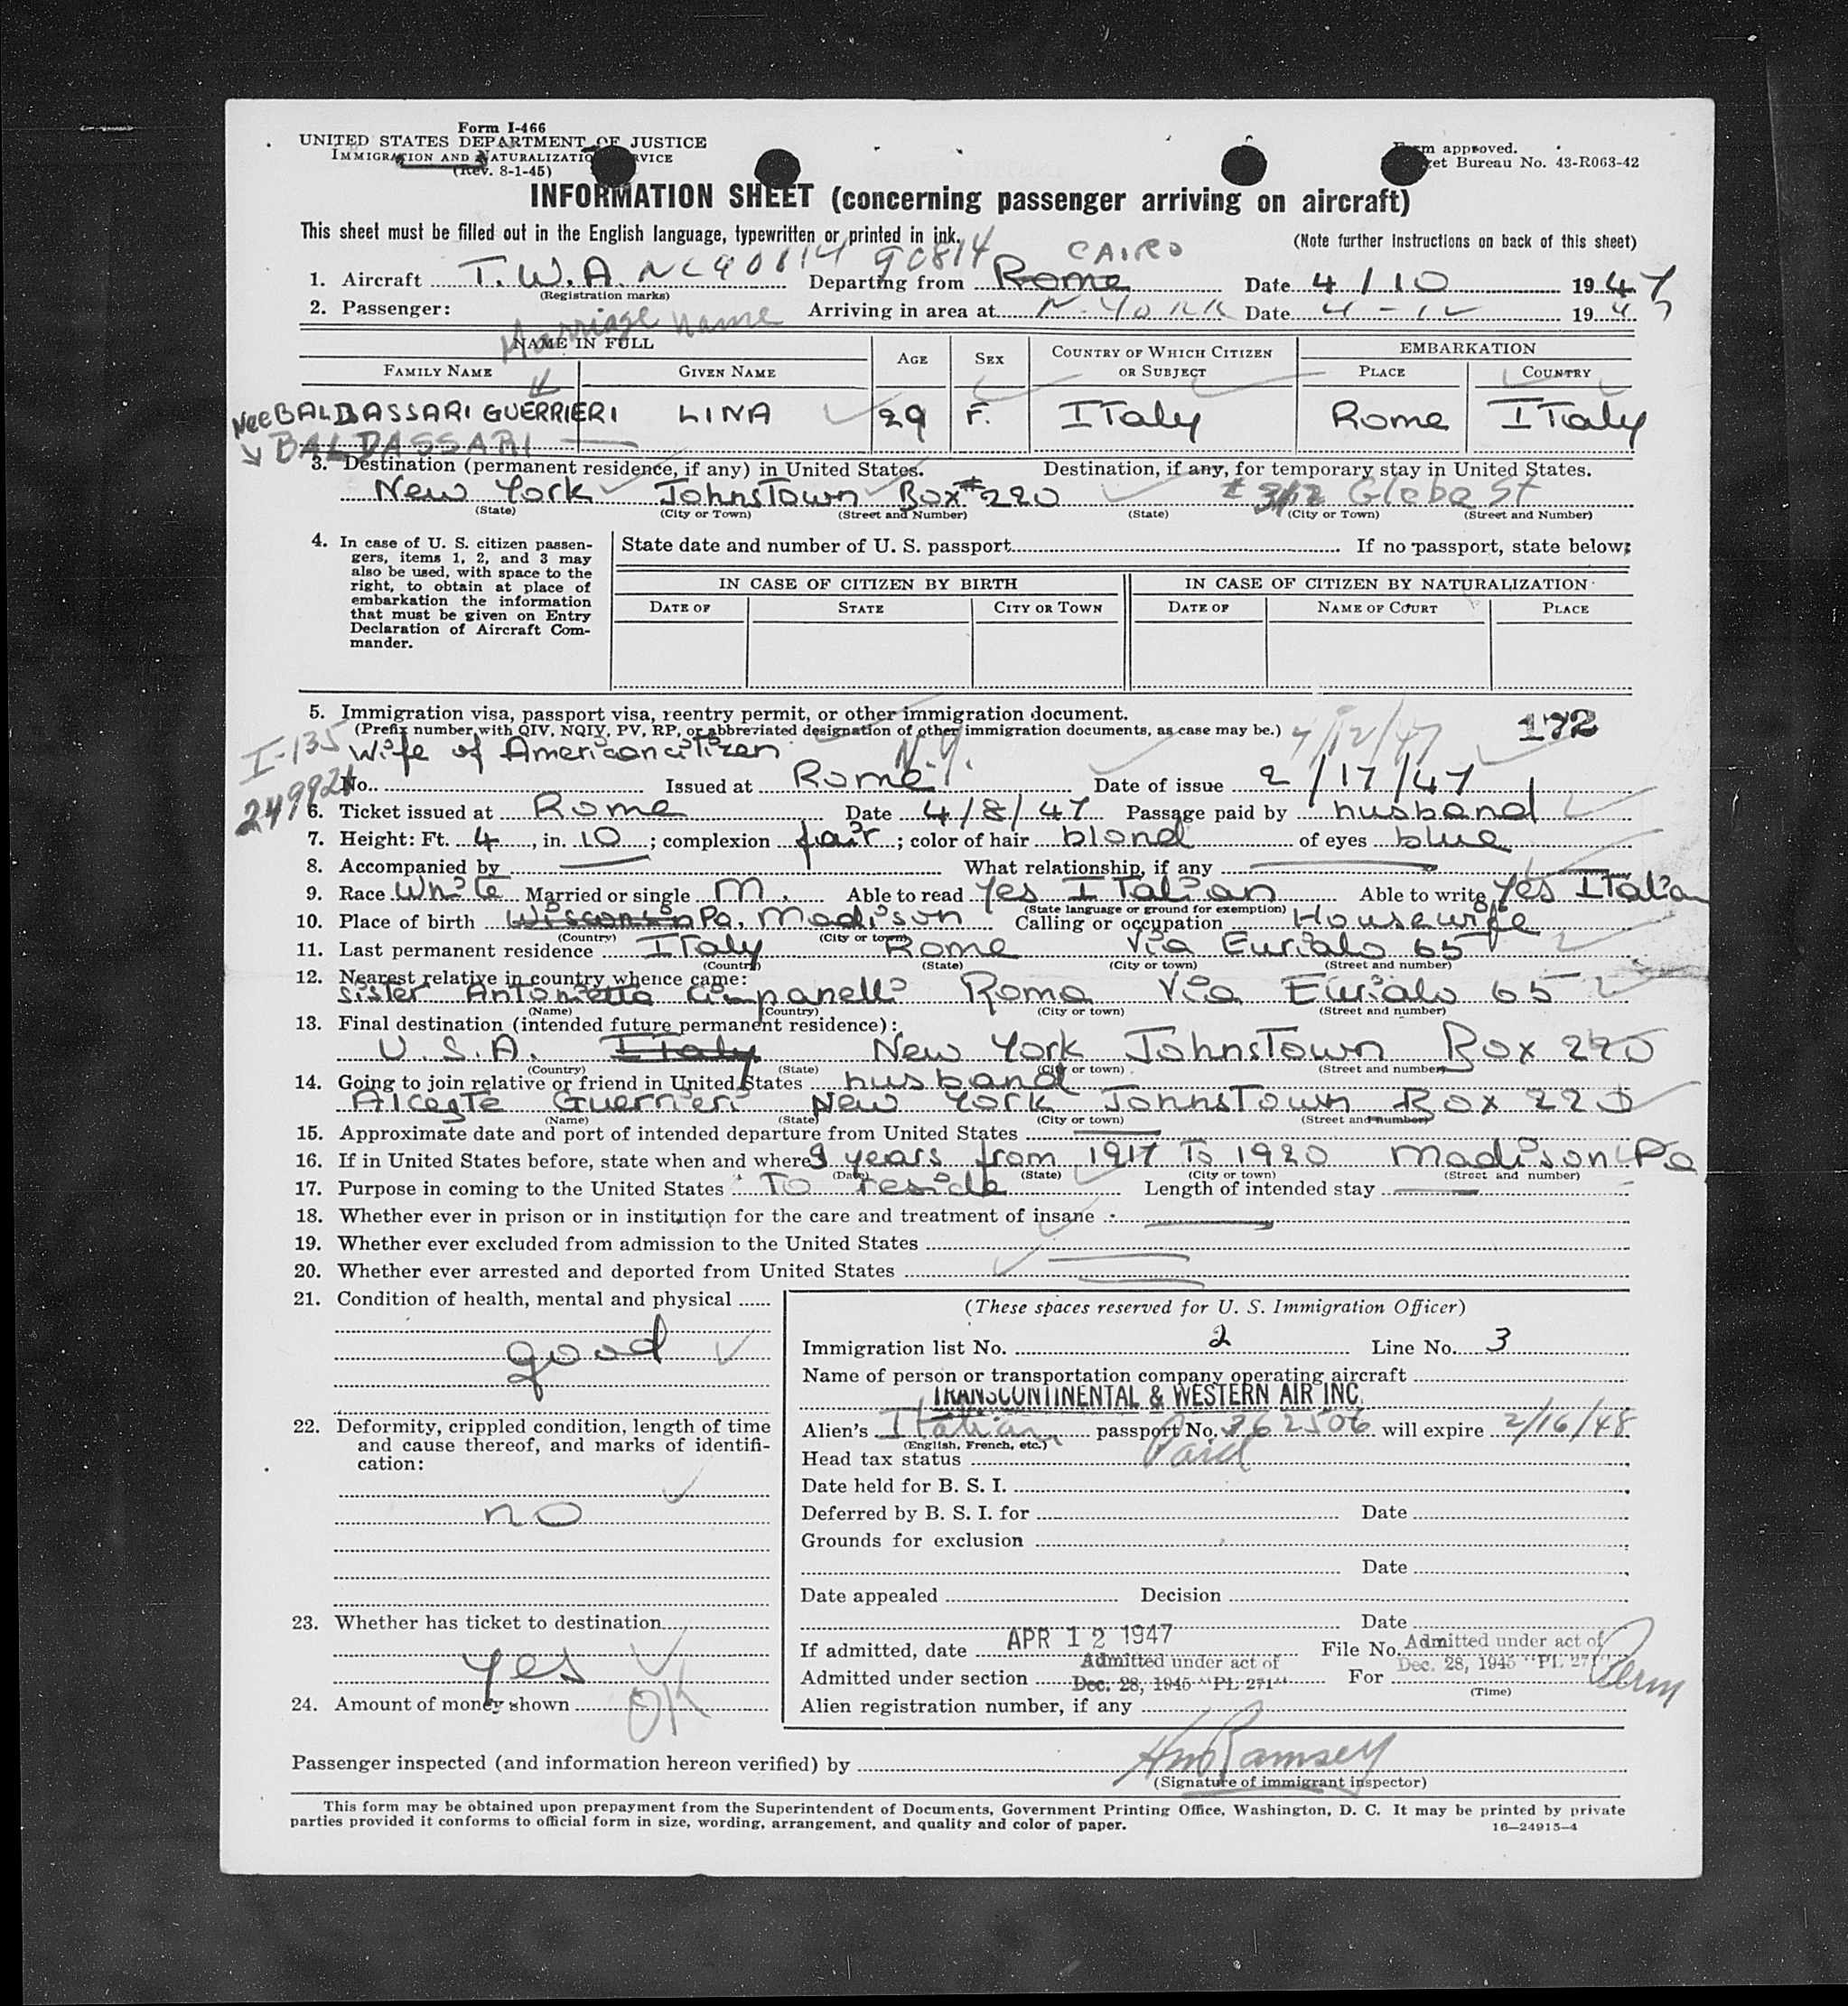 Form I-466
UNITED STATES DEPARTMENT OF JUSTICE
IMMIGRATION AND NATURALIZATION SERVICE
(Rev. 8-1-45)
Form approved.
Budget Bureau No. 43-R063-42
INFORMATION SHEET (concerning passenger arriving on aircraft)
This sheet must be filled out in the English language, typewritten or printed in ink.
(Note further instructions on back of this sheet)
1. Aircraft T.W.A. NC90814 90814 (Registration marks) Departing from Rome CAIRO Date 4/10 1947
2. Passenger: Arriving in area at N. YORK Date 4-12 1947
Marriage name
NAME IN FULL AGE SEX COUNTRY OF WHICH CITIZEN OR SUBJECT EMBARKATION
FAMILY NAME GIVEN NAME PLACE COUNTRY
Nee BALDASSARI GUERRIERI LINA 29 F. ITaly Rome ITaly
BALDASSARI
3. Destination (permanent residence, if any) in United States. Destination, if any, for temporary stay in United States.
New York JohnsTown Box #220 312 Glebe St
(State) (City or Town) (Street and Number) (State) (City or Town) (Street and Number)
4. In case of U. S. citizen passengers, items 1, 2, and 3 may also be used, with space to the right, to obtain at place of embarkation the information that must be given on Entry Declaration of Aircraft Commander.
State date and number of U. S. passport If no passport, state below:
IN CASE OF CITIZEN BY BIRTH IN CASE OF CITIZEN BY NATURALIZATION
DATE OF STATE CITY OR TOWN DATE OF NAME OF COURT PLACE
5. Immigration visa, passport visa, reentry permit, or other immigration document.
(Prefix number with QIV, NQIV, PV, RP, or abbreviated designation of other immigration documents, as case may be.) 4/12/47 172
I-135 Wife of American citizen N.Y.
24992 No. Issued at Rome Date of issue 2/17/47
6. Ticket issued at Rome Date 4/8/47 Passage paid by husband
7. Height: Ft. 4, in. 10; complexion fair; color of hair blond of eyes blue
8. Accompanied by What relationship, if any
9. Race White Married or single M. Able to read yes ITalian Able to write yes ITalian
(State language or ground for exemption)
10. Place of birth Wisconsin Pa. Madison Calling or occupation Housewife
(Country) (City or town)
11. Last permanent residence ITaly Rome Via Eurialo 65
(Country) (State) (City or town) (Street and number)
12. Nearest relative in country whence came:
sister Antonietta Cimpanelli Roma Via Eurialo 65
(Name) (Country) (City or town) (Street and number)
13. Final destination (intended future permanent residence):
U.S.A. Italy New York JohnsTown Box 220
(Country) (State) (City or town) (Street and number)
14. Going to join relative or friend in United States husband
Alceste Guerrieri New York JohnsTown Box 220
(Name) (State) (City or town) (Street and number)
15. Approximate date and port of intended departure from United States
16. If in United States before, state when and where 3 years from 1917 To 1920 Madison Pa
(Date) (State) (City or town) (Street and number)
17. Purpose in coming to the United States To reside Length of intended stay
18. Whether ever in prison or in institution for the care and treatment of insane
19. Whether ever excluded from admission to the United States
20. Whether ever arrested and deported from United States
21. Condition of health, mental and physical
good
22. Deformity, crippled condition, length of time and cause thereof, and marks of identification:
no
23. Whether has ticket to destination
yes
24. Amount of money shown OK
(These spaces reserved for U. S. Immigration Officer)
Immigration list No. 2 Line No. 3
Name of person or transportation company operating aircraft
TRANSCONTINENTAL & WESTERN AIR INC.
Alien's Italian passport No. 262506 will expire 2/16/48
(English, French, etc.)
Head tax status Paid
Date held for B. S. I.
Deferred by B. S. I. for Date
Grounds for exclusion
Date
Date appealed Decision
Date
If admitted, date APR 12 1947 File No. Admitted under act of Dec. 28, 1945 "PL 271"
Admitted under section Admitted under act of Dec. 28, 1945 "PL 271" For Perm
(Time)
Alien registration number, if any
Passenger inspected (and information hereon verified) by Ramsey
(Signature of immigrant inspector)
This form may be obtained upon prepayment from the Superintendent of Documents, Government Printing Office, Washington, D. C. It may be printed by private
parties provided it conforms to official form in size, wording, arrangement, and quality and color of paper.
16—24915-4